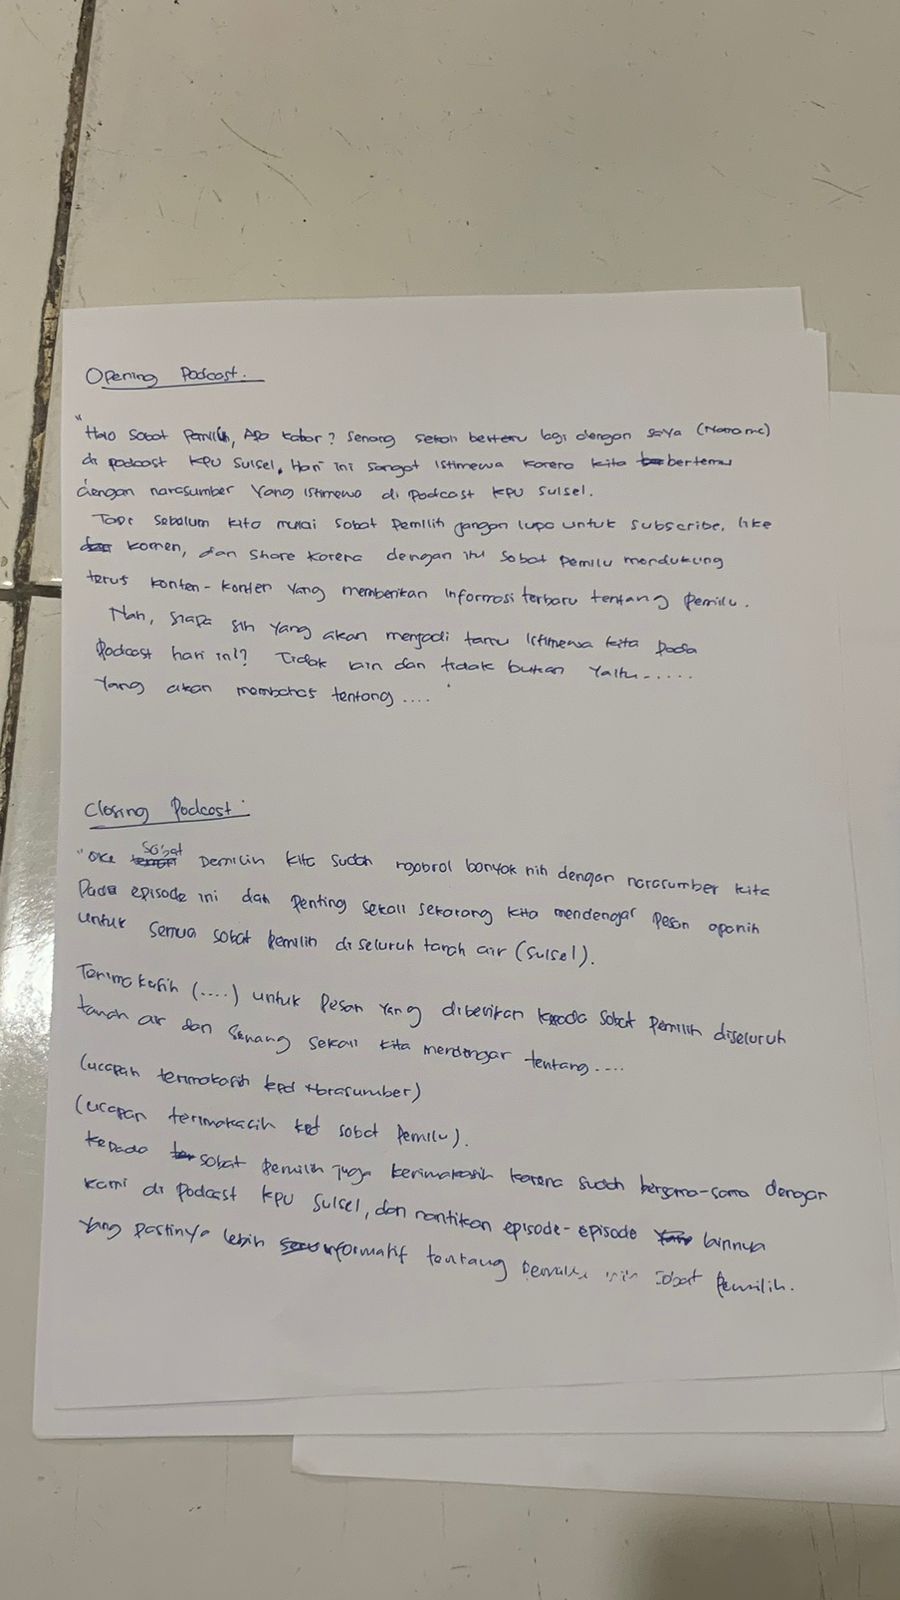 Opening Podcast.
"Halo Sobat Pemilih, Apa kabar? Senang sekali bertemu lagi dengan saya (Nama mc)
di podcast KPU Sulsel. Hari ini sangat istimewa karena kita bertemu
dengan narasumber Yang istimewa di Podcast KPU Sulsel.
Tapi sebelum kita mulai sobat pemilih jangan lupa untuk subscribe, like
komen, dan share karena dengan itu sobat Pemilu mendukung
terus konten-konten yang memberikan informasi terbaru tentang Pemilu.
Nah, siapa sih yang akan menjadi tamu istimewa kita pada
Podcast hari ini? Tidak lain dan tidak bukan Yaitu......
Yang akan membahas tentang ....
Closing Podcast.
"Oke Sobat Pemilih kita sudah ngobrol banyak nih dengan narasumber kita
Pada episode ini dan penting sekali sekarang kita mendengar pesan apanih
untuk semua sobat Pemilih di seluruh tanah air (Sulsel).
Terimakasih (....) untuk Pesan Yang diberikan kepada sobat Pemilih diseluruh
tanah air dan Senang sekali kita mendengar tentang....
(ucapan terimakasih kpd Narasumber)
(ucapan terimakasih kpd sobat Pemilu).
kepada sobat Pemilih juga terimakasih karena sudah bersama-sama dengan
kami di Podcast KPU Sulsel, dan nantikan episode-episode lainnya
Yang pastinya lebih informatif tentang sobat Pemilih.